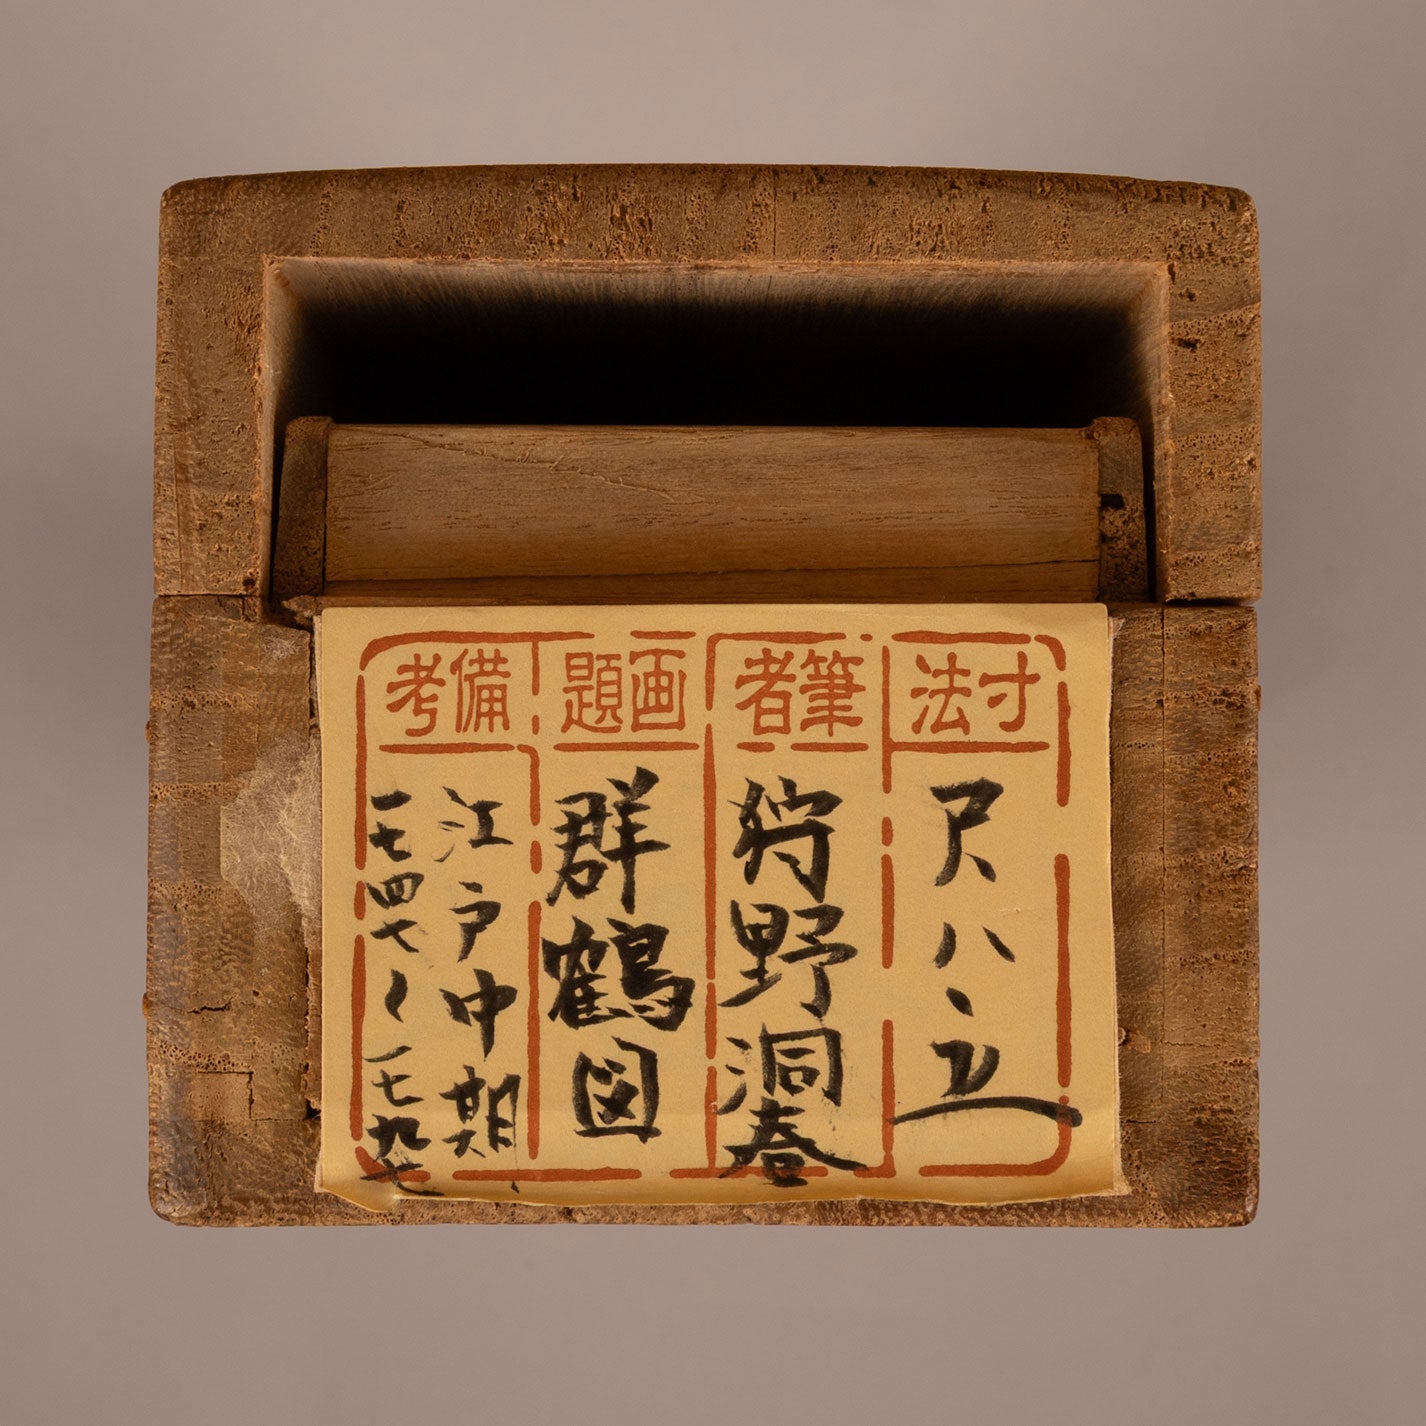 寸法
尺八立
筆者
狩野洞春
画題
群鶴図
備考
江戸中期
一七四七〜一七九七